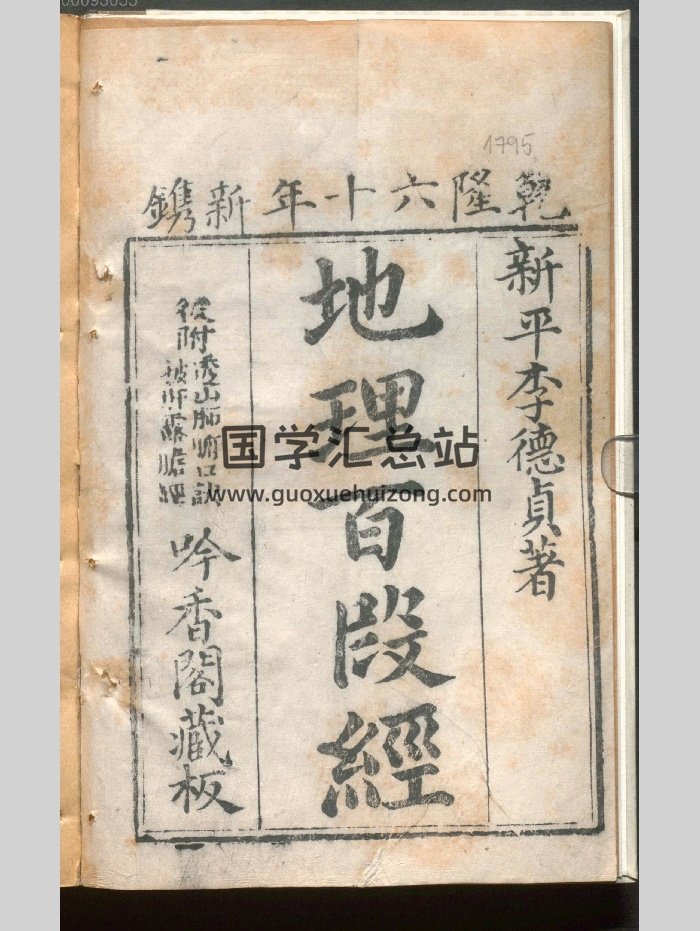 1795
乾隆六十年新鐫
新平李德貞著
地理百段經
後附
透山肺腑口訣
披肝露膽經
吟香閣藏板
国学汇总站
www.guoxuehuizong.com